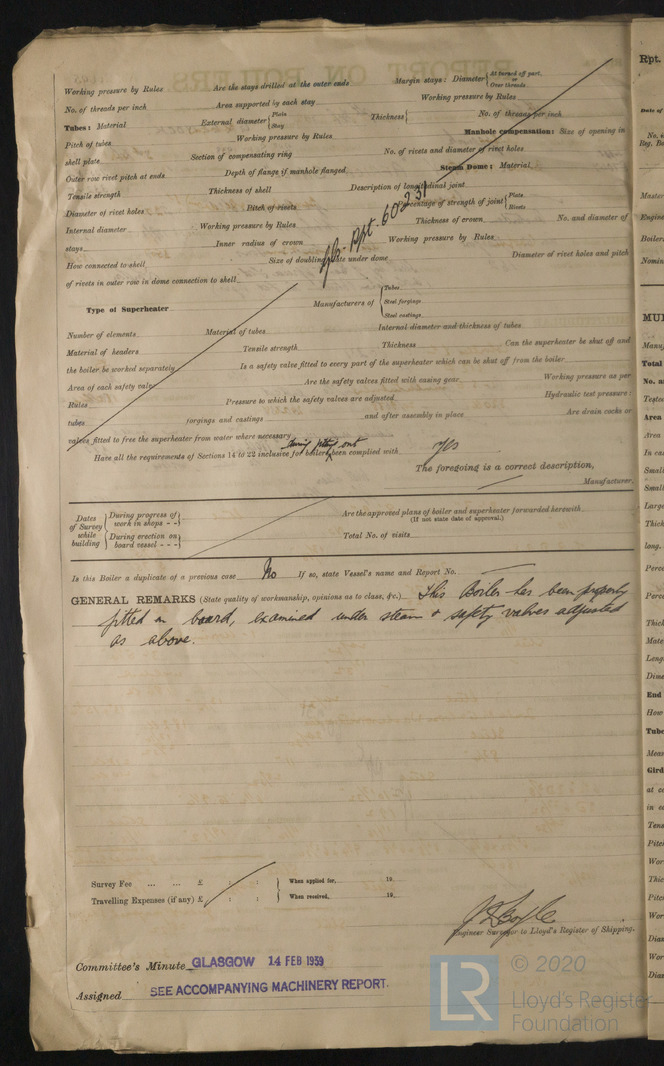 Working pressure by Rules Are the stays drilled at the outer ends Margin stays: Diameter { At turned off part, or Over threads
No. of threads per inch Area supported by each stay Working pressure by Rules
Tubes: Material External diameter { Plate Stay Thickness { No. of threads per inch
Pitch of tubes Working pressure by Rules Manhole compensation: Size of opening in
shell plate Section of compensating ring No. of rivets and diameter of rivet holes
Outer row rivet pitch at ends Depth of flange if manhole flanged Steam Dome: Material
Tensile strength Thickness of shell Description of longitudinal joint
Diameter of rivet holes Pitch of rivets Percentage of strength of joint { Plate Rivets
Internal diameter Working pressure by Rules Thickness of crown No. and diameter of
stays Inner radius of crown Working pressure by Rules
How connected to shell Size of doubling plate under dome Diameter of rivet holes and pitch
of rivets in outer row in dome connection to shell
Rpt. 60231
Type of Superheater Manufacturers of { Tubes Steel forgings Steel castings
Number of elements Material of tubes Internal diameter and thickness of tubes
Material of headers Tensile strength Thickness Can the superheater be shut off and
the boiler be worked separately Is a safety valve fitted to every part of the superheater which can be shut off from the boiler
Area of each safety valve Are the safety valves fitted with easing gear Working pressure as per
Rules Pressure to which the safety valves are adjusted Hydraulic test pressure:
tubes forgings and castings and after assembly in place Are drain cocks or
valves fitted to free the superheater from water where necessary
during fitting out
Have all the requirements of Sections 14 to 22 inclusive for boiler been complied with yes
The foregoing is a correct description,
Manufacturer.
Dates of Survey while building { During progress of work in shops - - } { During erection on board vessel - - - }
Are the approved plans of boiler and superheater forwarded herewith
(If not state date of approval.)
Total No. of visits
Is this Boiler a duplicate of a previous case No If so, state Vessel's name and Report No.
GENERAL REMARKS (State quality of workmanship, opinions as to class, &c.) This Boiler has been properly
fitted on board, examined under steam & safety valves adjusted
as above.
Survey Fee ... ... £ : : } When applied for, 19
Travelling Expenses (if any) £ : : } When received, 19
Engineer Surveyor to Lloyd's Register of Shipping.
Committee's Minute GLASGOW 14 FEB 1939
Assigned SEE ACCOMPANYING MACHINERY REPORT.
LR © 2020
Lloyd's Register
Foundation
Rpt.
Date of
No. o
Reg. Bo
Master
Engine
Boiler
Nomin
MUL
Manuf
Total
No. a
Tested
Area
Area
In ca
Small
Small
Large
Thick
long.
Perce
Perce
Thick
Mate
Leng
Dime
End
How
Tube
Meas
Gird
at ce
in e
Tens
Pitc
Wor
Thic
Pitc
Wor
Dia
Wor
Dia